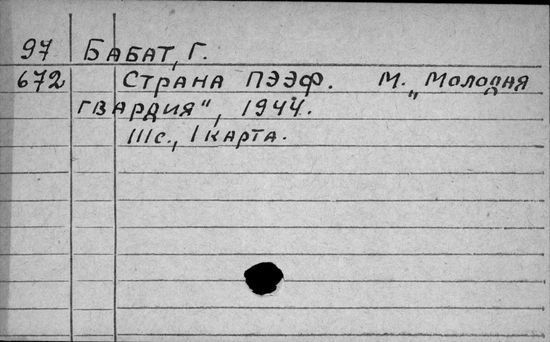 97 БАБАТ, Г.
672 СТРАНА ПЭЭФ. М. „МОЛОДАЯ
ГВАРДИЯ", 1944.
111с., 1 КАРТА.